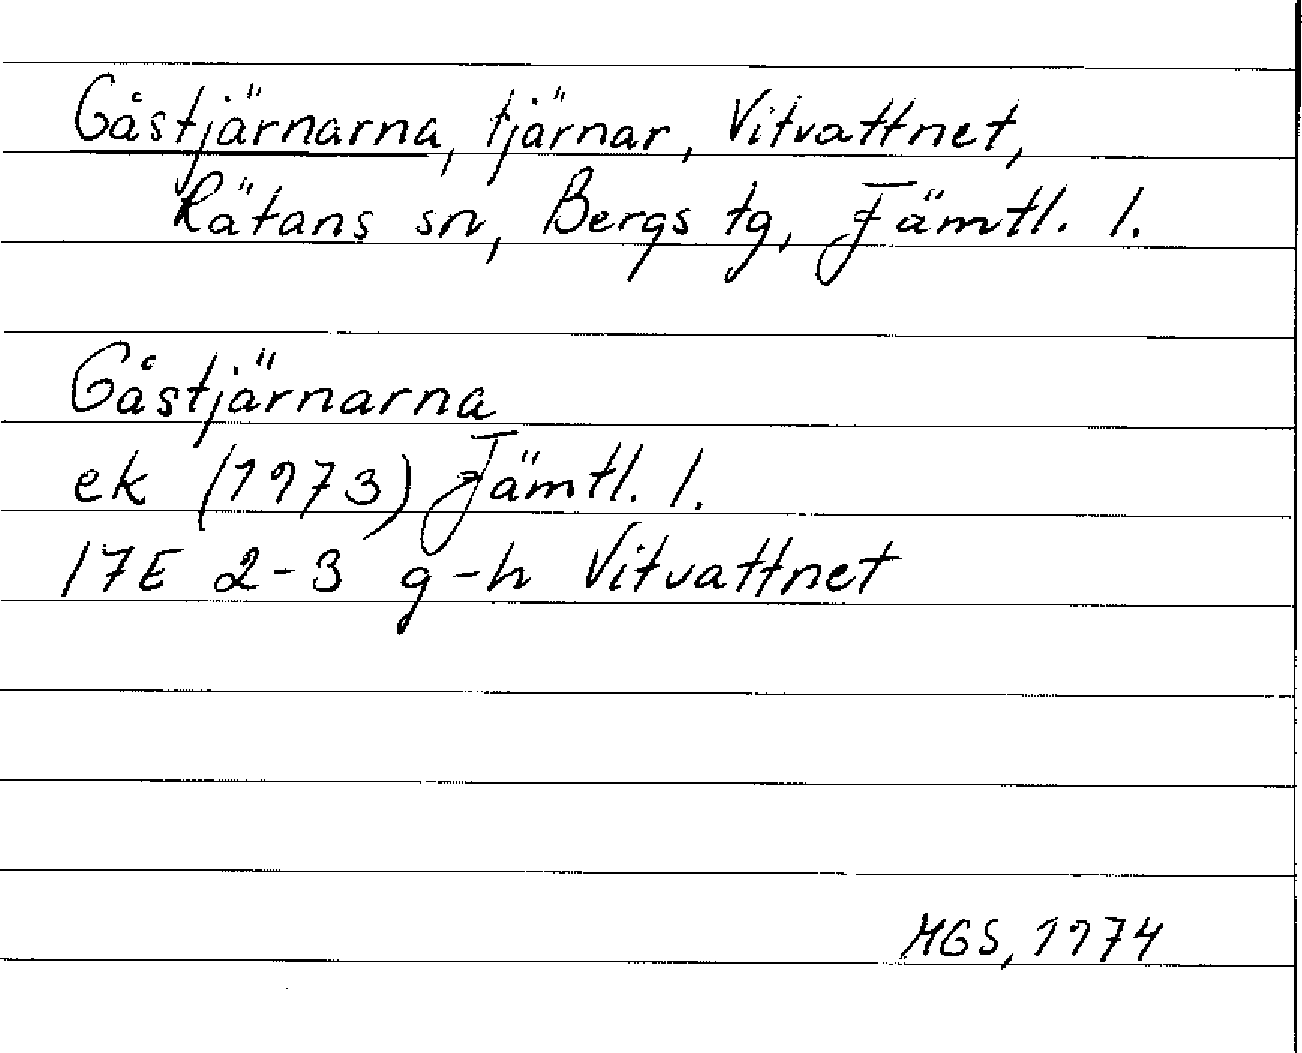 Gåstjärnarna, tjärnar, Vitvattnet,
Rätans sn, Bergs tg, Jämtl. l.
Gåstjärnarna
ek (1973) Jämtl. l.
17E 2-3 g-h Vitvattnet
MGS, 1974